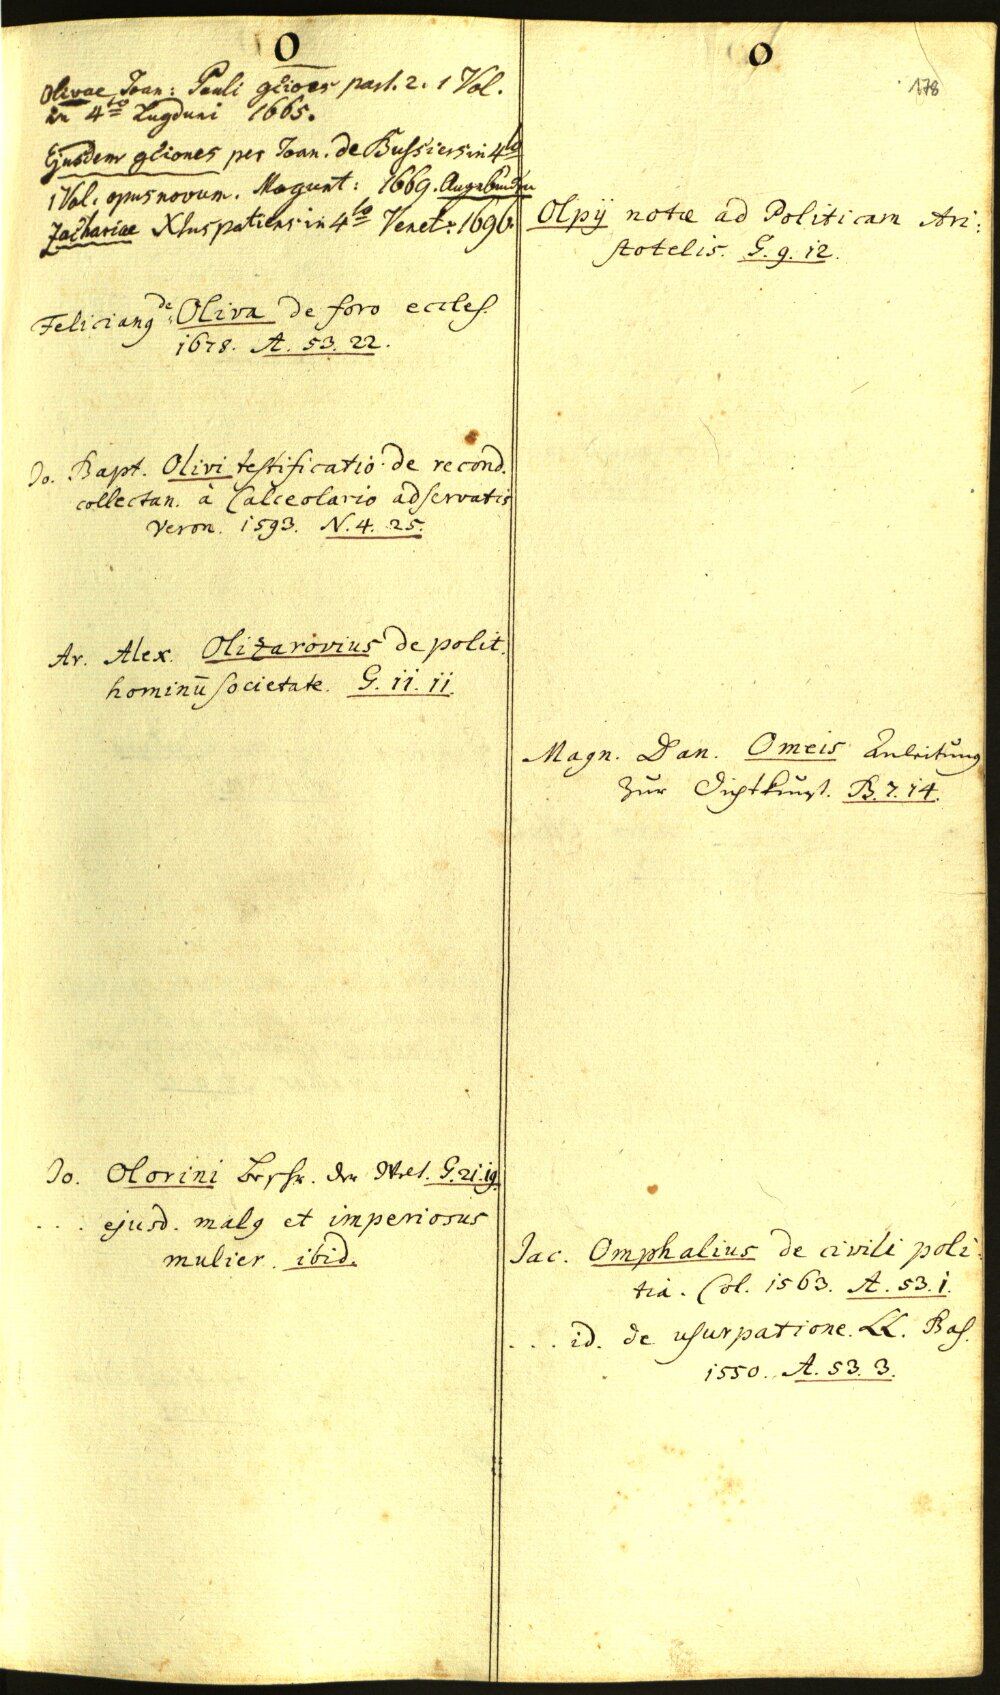 O
Olivae Joan: Pauli gtiones part. 2. 1 Vol.
in 4to Lugduni 1665.
Ejusdem gtiones per Joan. de Bussiers in 4to
1 Vol. opus novum. Mogunt: 1669. Angebunden
Zachariae Xtus patiens in 4to Venet: 1696.
Feliciang de Oliva de foro eccles.
1678. A. 53. 22.
Jo. Bapt. Olivi testificatio de recond.
collectan. à Calceolario adservatis
Veron. 1593. N. 4. 25.
Ar. Alex. Olizarovius de polit.
hominū societate. G. ii. ii.
Jo. Olorini Beschr. der Welt. G. 21. 19.
. . . ejusd. malg et imperiosus
mulier. ibid.
O
178
Olpij notæ ad Politicam Ari:
stotelis. G. 9. 12.
Magn. Dan. Omeis Anleitung
zur Dichtkunst. B. 7. 14.
Jac. Omphalius de civili poli:
tia. Col. 1563. A. 53. 1.
. . . id. de usurpatione LL. Bas.
1550. A. 53. 3.